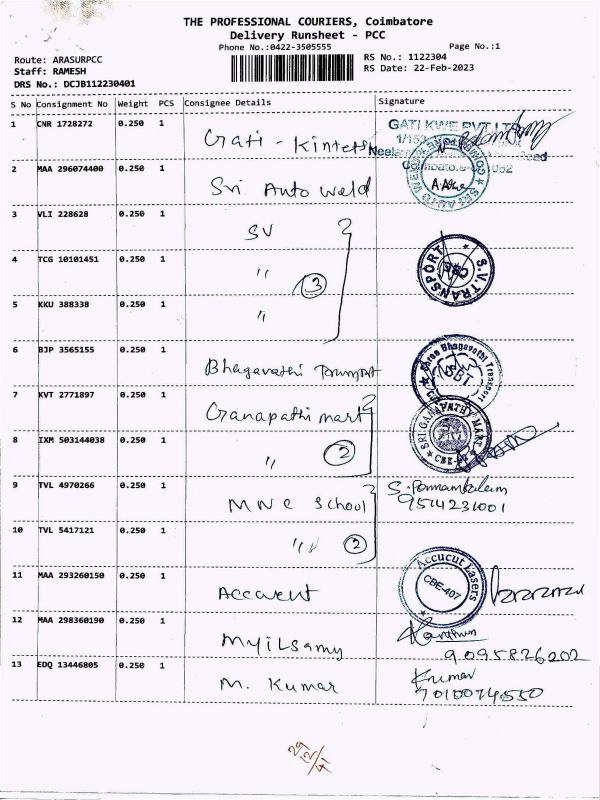 THE PROFESSIONAL COURIERS, Coimbatore
Delivery Runsheet - PCC
Phone No.:0422-3505555
Page No.:1
Route: ARASURPCC
RS No.: 1122304
Staff: RAMESH
RS Date: 22-Feb-2023
DRS No.: DCJB112230401
S No Consignment No Weight PCS Consignee Details Signature
1 CNR 1728272 0.250 1 Gati - Kintets GATI KWE PVT LT
2 MAA 296074400 0.250 1 Sri Auto Weld SRI AUTO WELD
3 VLI 228628 0.250 1 SV
4 TCG 10101451 0.250 1 〃 3 S.V. TRANSPORT CBE
5 KKU 388338 0.250 1 〃
6 BJP 3565155 0.250 1 Bhagavathi Shree Bhagavathi Transport SBT
7 KVT 2771897 0.250 1 Ganapathi mart SRI GANAPATHY MART
8 IXM 503144038 0.250 1 〃 2
9 TVL 4970266 0.250 1 MNC School S. Ponnambalam
9514231001
10 TVL 5417121 0.250 1 〃 2
11 MAA 293260150 0.250 1 Accucut Accucut Lasers CBE-407
12 MAA 298360190 0.250 1 Myilsamy
9095826202
13 EDQ 13446805 0.250 1 M. Kumar Kumar
7010074550
29/12/41